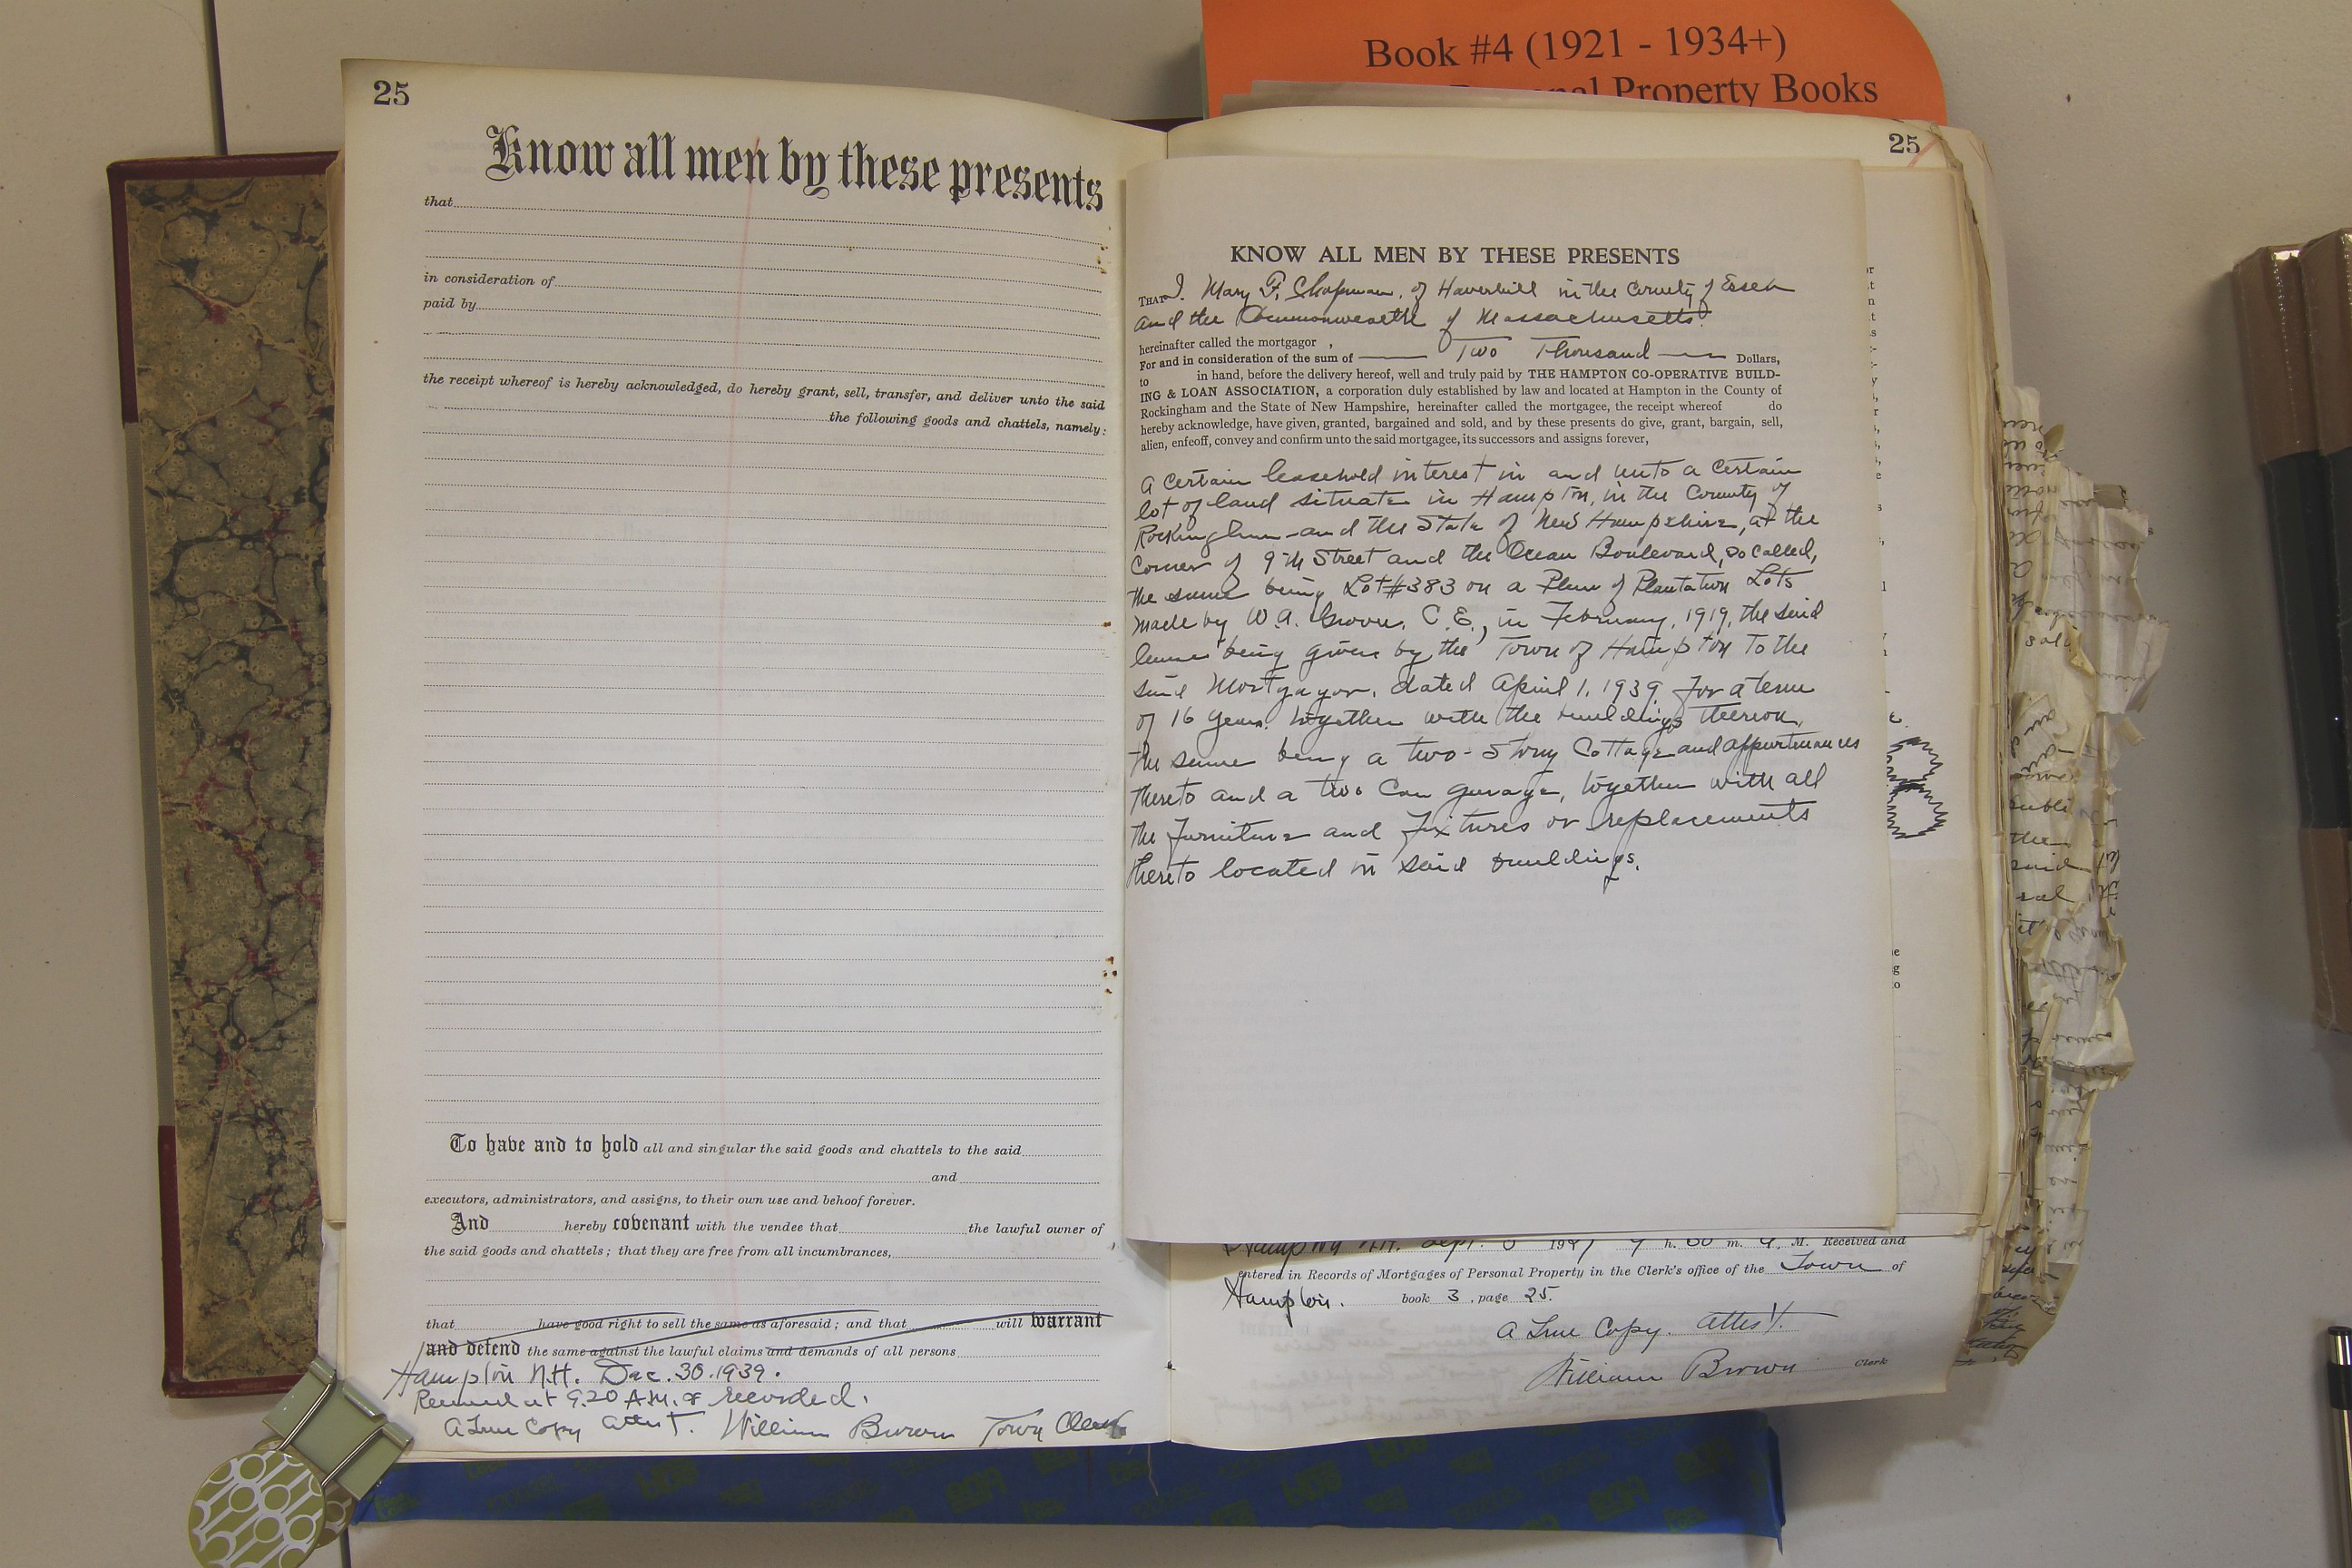 Book #4 (1921 - 1934+)
Personal Property Books
25
Know all men by these presents
that
in consideration of
paid by
the receipt whereof is hereby acknowledged, do hereby grant, sell, transfer, and deliver unto the said
the following goods and chattels, namely:
To have and to hold all and singular the said goods and chattels to the said
and
executors, administrators, and assigns, to their own use and behoof forever.
And hereby covenant with the vendee that the lawful owner of
the said goods and chattels; that they are free from all incumbrances,
that have good right to sell the same as aforesaid; and that will warrant
and defend the same against the lawful claims and demands of all persons
Hampton N.H. Dec. 30. 1939.
Received at 9.20 A.M. & recorded.
A True Copy Attest. William Brown Town Clerk
25
KNOW ALL MEN BY THESE PRESENTS
THAT I. Mary F. Chapman, of Haverhill in the County of Essex
and the Commonwealth of Massachusetts.
hereinafter called the mortgagor ,
For and in consideration of the sum of Two Thousand Dollars,
to in hand, before the delivery hereof, well and truly paid by THE HAMPTON CO-OPERATIVE BUILD-
ING & LOAN ASSOCIATION, a corporation duly established by law and located at Hampton in the County of
Rockingham and the State of New Hampshire, hereinafter called the mortgagee, the receipt whereof do
hereby acknowledge, have given, granted, bargained and sold, and by these presents do give, grant, bargain, sell,
alien, enfeoff, convey and confirm unto the said mortgagee, its successors and assigns forever,
a certain leasehold interest in and unto a certain
lot of land situate in Hampton, in the County of
Rockingham and the State of New Hampshire, at the
Corner of 9th Street and the Ocean Boulevard, so called,
the same being Lot #383 on a Plan of Plantation Lots
made by W.A. Grover, C.E., in February, 1919, the said
lease being given by the Town of Hampton to the
said Mortgagor, dated April 1, 1939 for a term
of 16 years. together with the buildings thereon,
the same being a two-story Cottage and appurtenances
thereto and a two car garage, together with all
the furniture and fixtures or replacements
thereto located in said buildings.
Hampton N.H. Sept. 19 h. m. M. Received and
entered in Records of Mortgages of Personal Property in the Clerk's office of the Town of
Hampton. book 3, page 25.
A True Copy. Attest.
William Brown Clerk